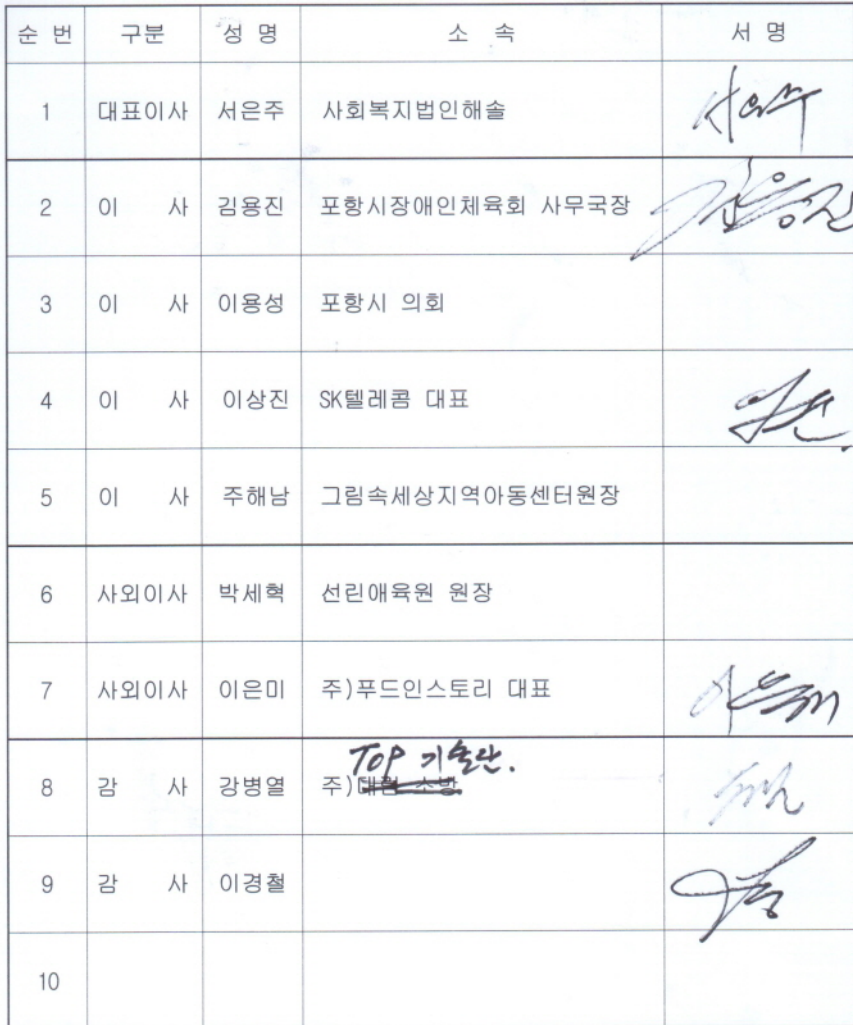 순 번 구분 성 명 소 속 서 명
1 대표이사 서은주 사회복지법인해솔
2 이 사 김용진 포항시장애인체육회 사무국장
3 이 사 이용성 포항시 의회
4 이 사 이상진 SK텔레콤 대표
5 이 사 주해남 그림속세상지역아동센터원장
6 사외이사 박세혁 선린애육원 원장
7 사외이사 이은미 주)푸드인스토리 대표
TOP 기술단.
8 감 사 강병열 주)
9 감 사 이경철
10